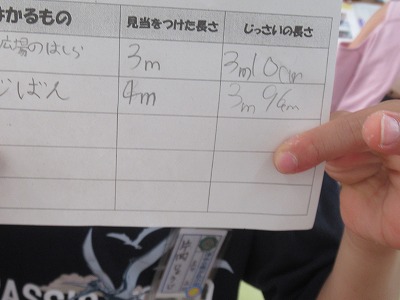 はかるもの 見当をつけた長さ じっさいの長さ
広場のはしら 3m 3m10cm
じばん 4m 3m96cm